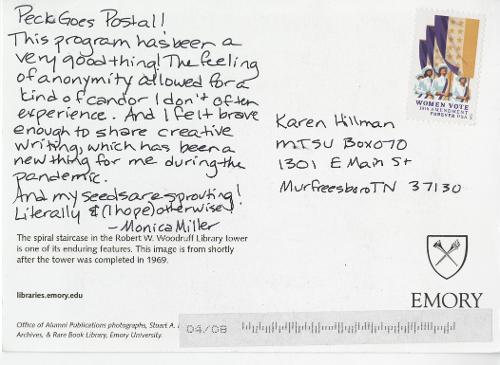 Peck Goes Postal!
This program has been a
very good thing! The feeling
of anonymity allowed for a
kind of candor I don't often
experience. And I felt brave
enough to share creative
writing, which has been a
new thing for me during the
pandemic.
And my seeds are sprouting!
Literally & (I hope) otherwise!
– Monica Miller
The spiral staircase in the Robert W. Woodruff Library tower
is one of its enduring features. This image is from shortly
after the tower was completed in 1969.
libraries.emory.edu
Office of Alumni Publications photographs, Stuart A.
Archives, & Rare Book Library, Emory University.
WOMEN VOTE
19TH AMENDMENT
FOREVER USA
Karen Hillman
MTSU Box 070
1301 E Main St
Murfreesboro TN 37130
EMORY
04/08